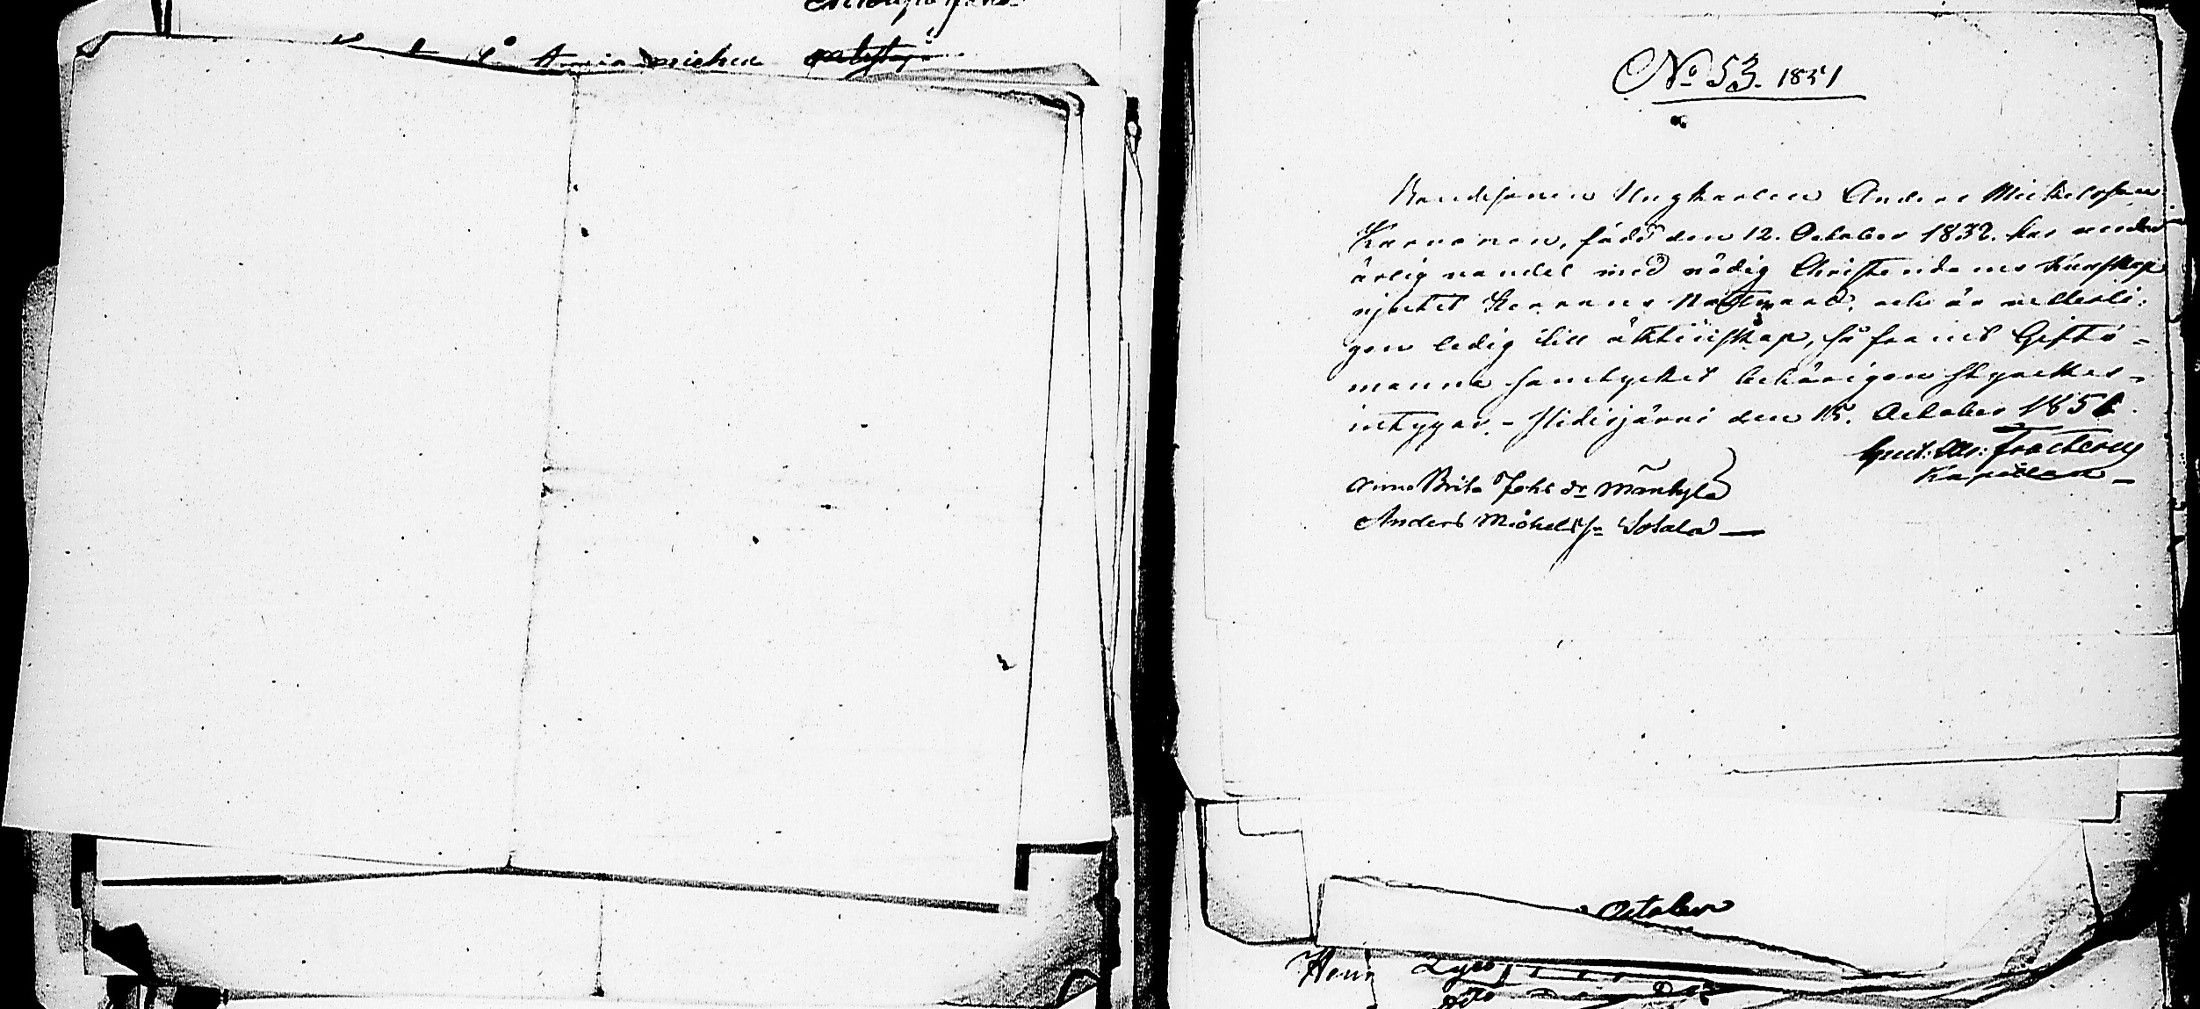 Anna
No 53. 1851
Bondesonen Ungkarlen Anders Michelsson
Karvonen, född den 12. October 1832. har under
ärlig vandel med nödig Christendoms kunskap
njutit Herrans Nattvard, och är veterli:
gen ledig till äktenskap, så framt Gifto-
manna samtycket behörigen styrckes -
intygar. - Hidisjärvi den 15. October 1851.
Kapellan -
Anna Brita Johs dr Mäntylä
Anders Michelss= Sotala -
October
Henr